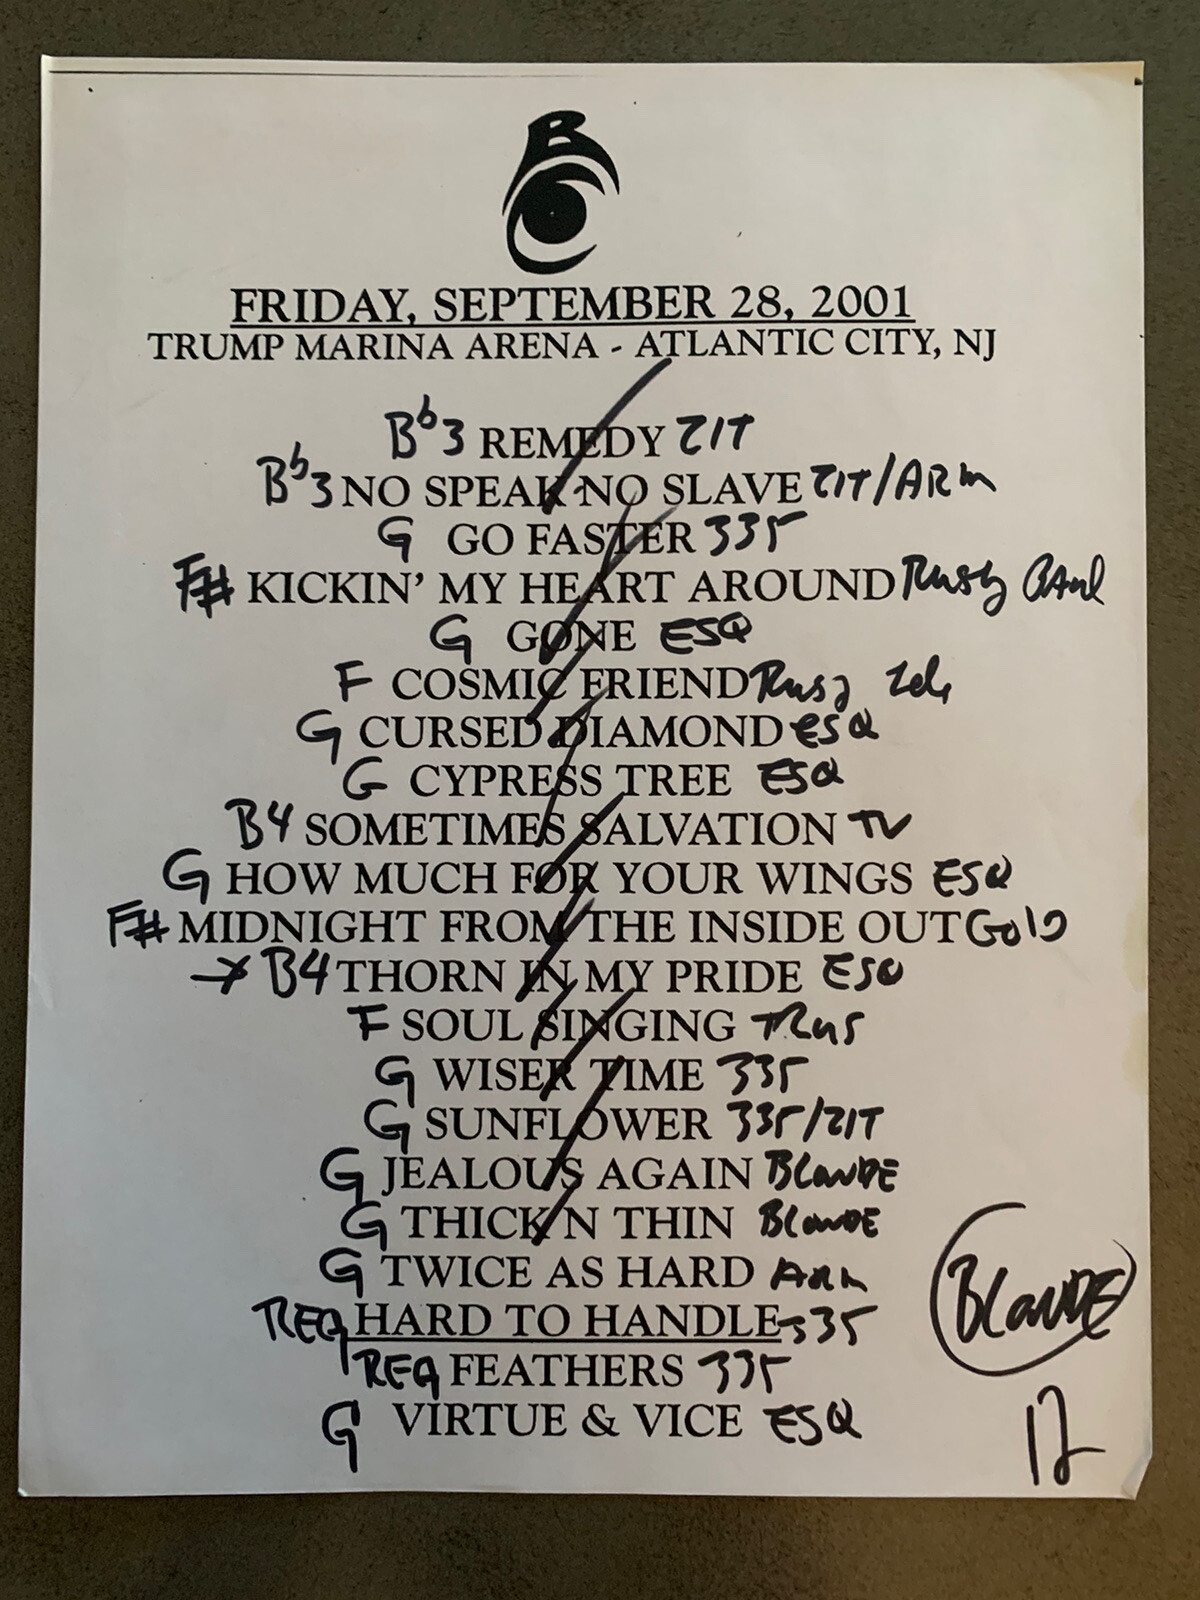 B
FRIDAY, SEPTEMBER 28, 2001
TRUMP MARINA ARENA - ATLANTIC CITY, NJ
Bb3 REMEDY ZIT
Bb3 NO SPEAK NO SLAVE ZIT/ARM
G GO FASTER 335
F# KICKIN' MY HEART AROUND Rusty
G GONE ESQ
F COSMIC FRIEND
G CURSED DIAMOND ESQ
G CYPRESS TREE ESQ
B4 SOMETIMES SALVATION TV
G HOW MUCH FOR YOUR WINGS ESQ
F# MIDNIGHT FROM THE INSIDE OUT Gold
→ B4 THORN IN MY PRIDE ESQ
F SOUL SINGING TRus
G WISER TIME 335
G SUNFLOWER 335/ZIT
G JEALOUS AGAIN BLONDE
G THICK N THIN BLONDE
G TWICE AS HARD ARM
REG HARD TO HANDLE 335
REG FEATHERS 335
G VIRTUE & VICE ESQ
BLONDE
12